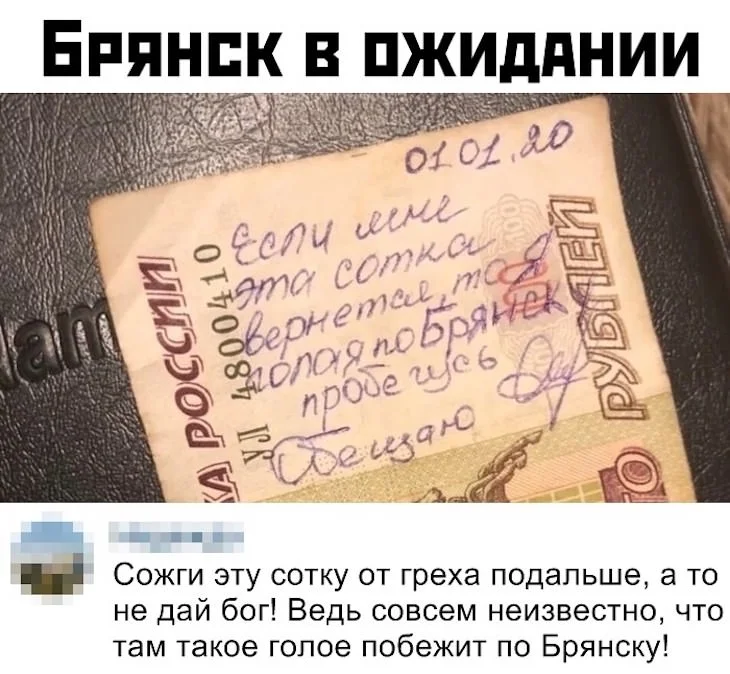 Брянск в ожидании
01.01.20
Если мне
эта сотка
вернется, то я
голая по Брянску
пробегусь
Обещаю
РОССИИ
УЛ 4800410
РУБЛЕЙ
100
Сожги эту сотку от греха подальше, а то
не дай бог! Ведь совсем неизвестно, что
там такое голое побежит по Брянску!